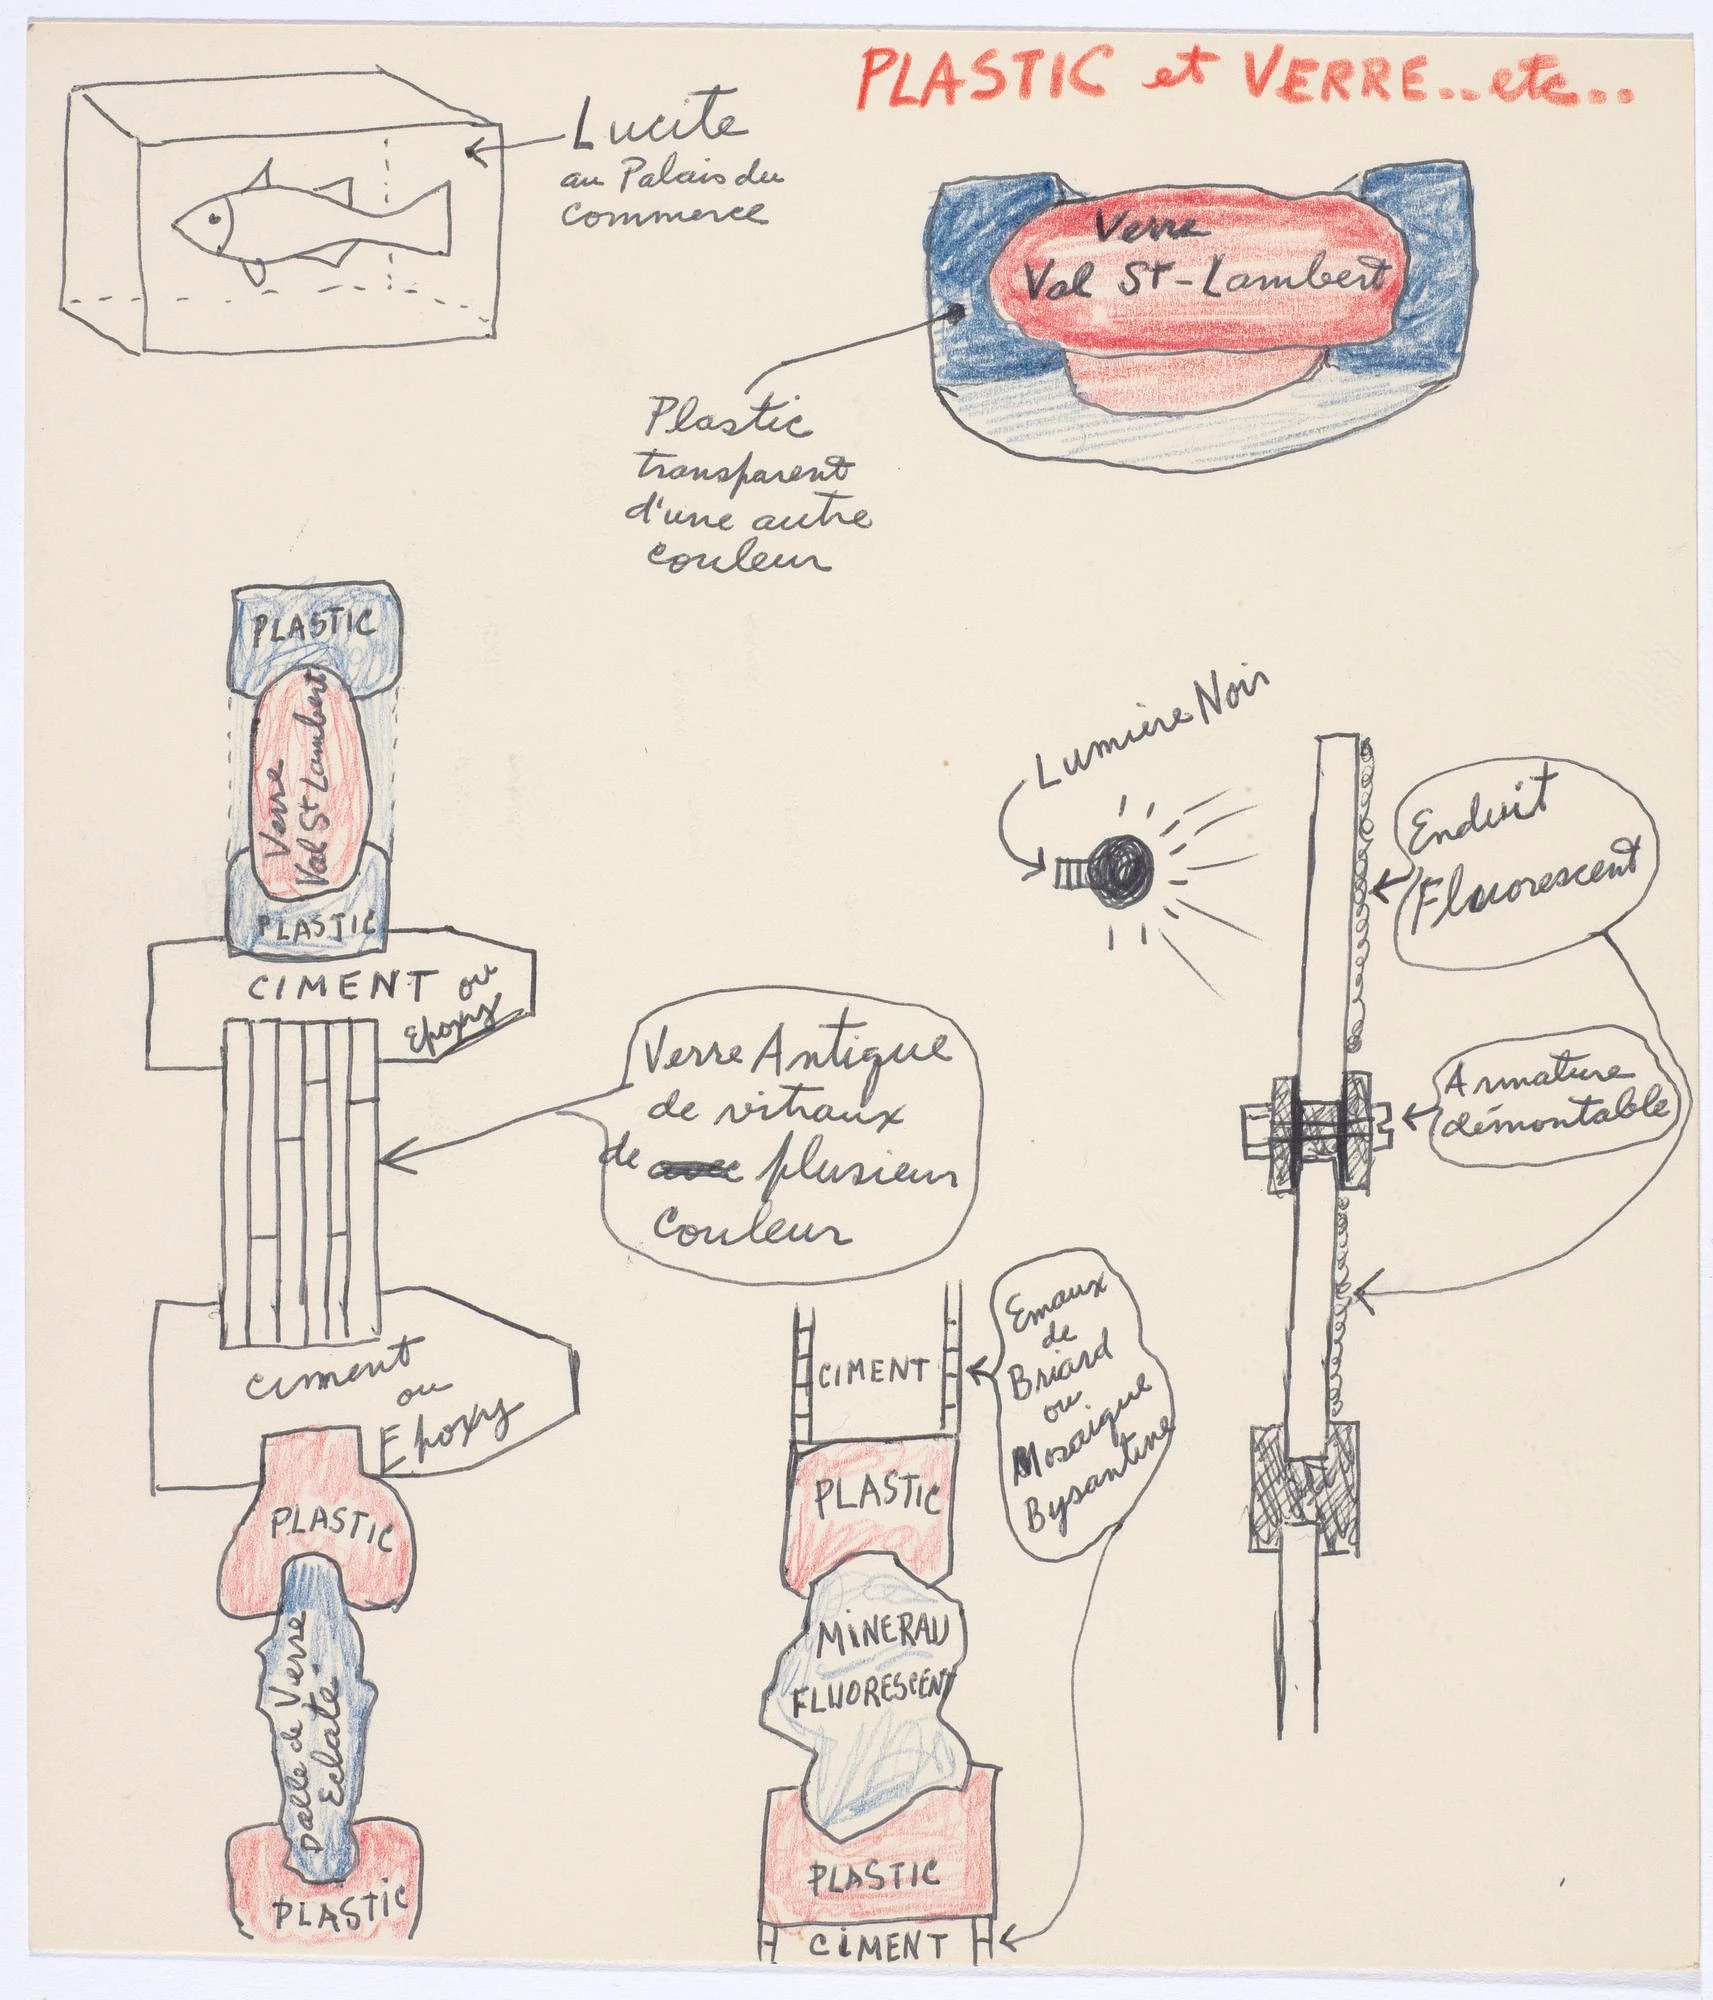 PLASTIC et VERRE..etc...
Lucite
au Palais du
Commerce
Verre
Val St-Lambert
Plastic
transparent
d'une autre
couleur
PLASTIC
Verre
Val St Lambert
PLASTIC
CIMENT ou
Epoxy
Lumière Noir
Enduit
Fluorescent
Armature
démontable
Verre Antique
de vitraux
de plusieur
couleur
ciment
ou
Epoxy
PLASTIC
Dalle de Verre
Eclaté
PLASTIC
CIMENT
Emaux
de
Briard
ou
Mosaique
Bysantine
PLASTIC
MINERAU
FLUORESCENT
PLASTIC
CIMENT